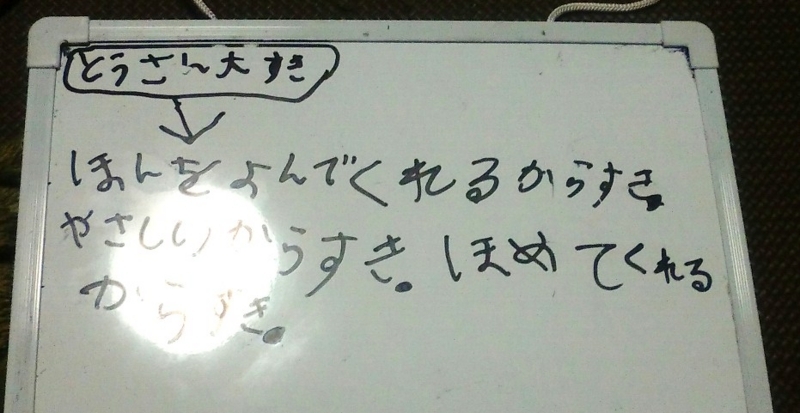 とうさん大すき
ほんをよんでくれるからすき。
やさしいからすき。ほめてくれる
からすき。